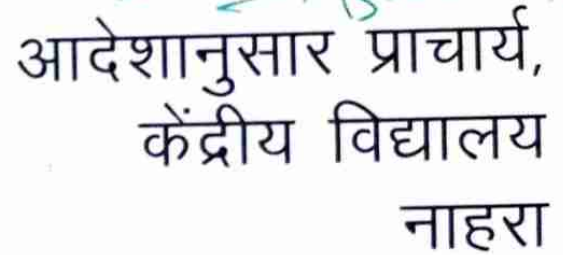 आदेशानुसार प्राचार्य,
केंद्रीय विद्यालय
नाहरा